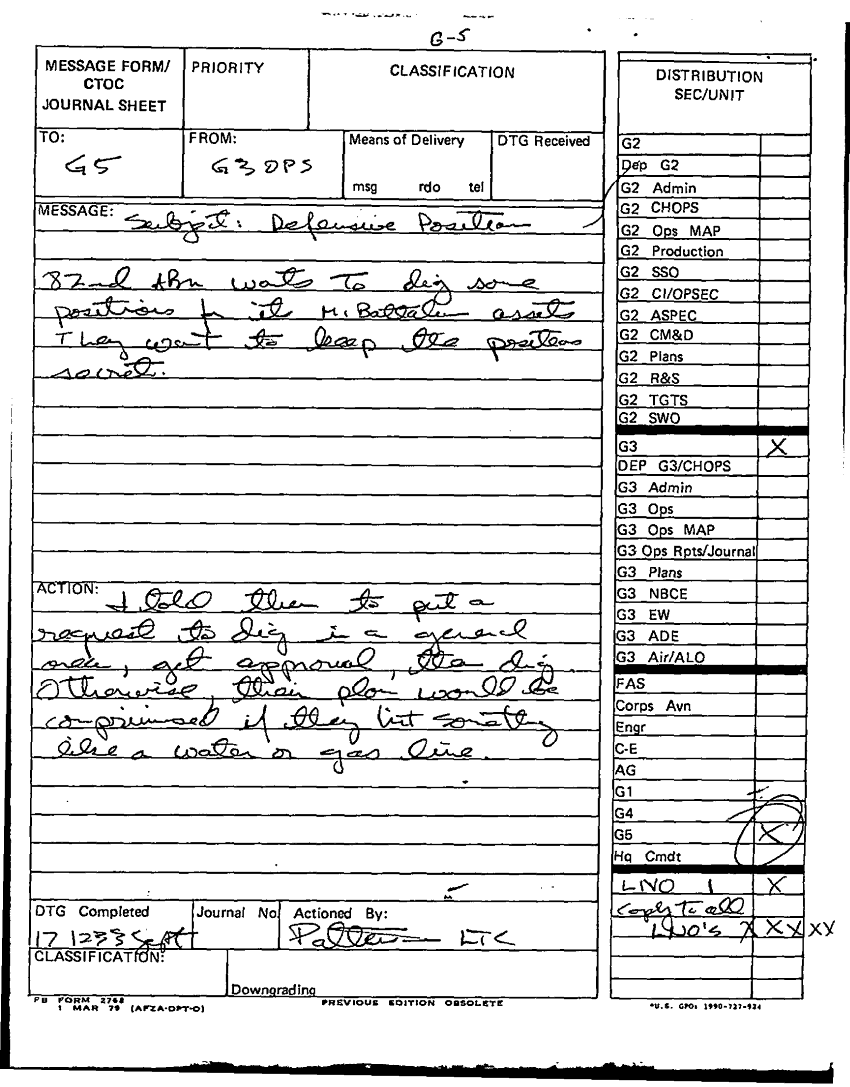 G-5
MESSAGE FORM/
CTOC
JOURNAL SHEET
PRIORITY
CLASSIFICATION
TO:
G5
FROM:
G3 OPS
Means of Delivery
msg rdo tel
DTG Received
MESSAGE: Subjet: Defensive Position
82nd ABn wants to dig some
positions for it Battalion assets
They want to keep the positions
secret.
ACTION: I told them to put a
request to dig in a general
area, get approval, then dig
Otherwise, their plan would be
comprimised if they hit something
like a water or gas line.
DTG Completed
17 1233 Sept
Journal No.
Actioned By:
Patterson LTC
CLASSIFICATION:
Downgrading
FB FORM 2768
1 MAR 79 (AFZA-DPT-O)
PREVIOUS EDITION OBSOLETE
DISTRIBUTION
SEC/UNIT
G2
Dep G2
G2 Admin
G2 CHOPS
G2 Ops MAP
G2 Production
G2 SSO
G2 CI/OPSEC
G2 ASPEC
G2 CM&D
G2 Plans
G2 R&S
G2 TGTS
G2 SWO
G3 X
DEP G3/CHOPS
G3 Admin
G3 Ops
G3 Ops MAP
G3 Ops Rpts/Journal
G3 Plans
G3 NBCE
G3 EW
G3 ADE
G3 Air/ALO
FAS
Corps Avn
Engr
C-E
AG
G1
G4
G5 X
Hq Cmdt
LNO 1 X
Copy To all
LNO's X X X XX
*U.S. GPO: 1990-727-924